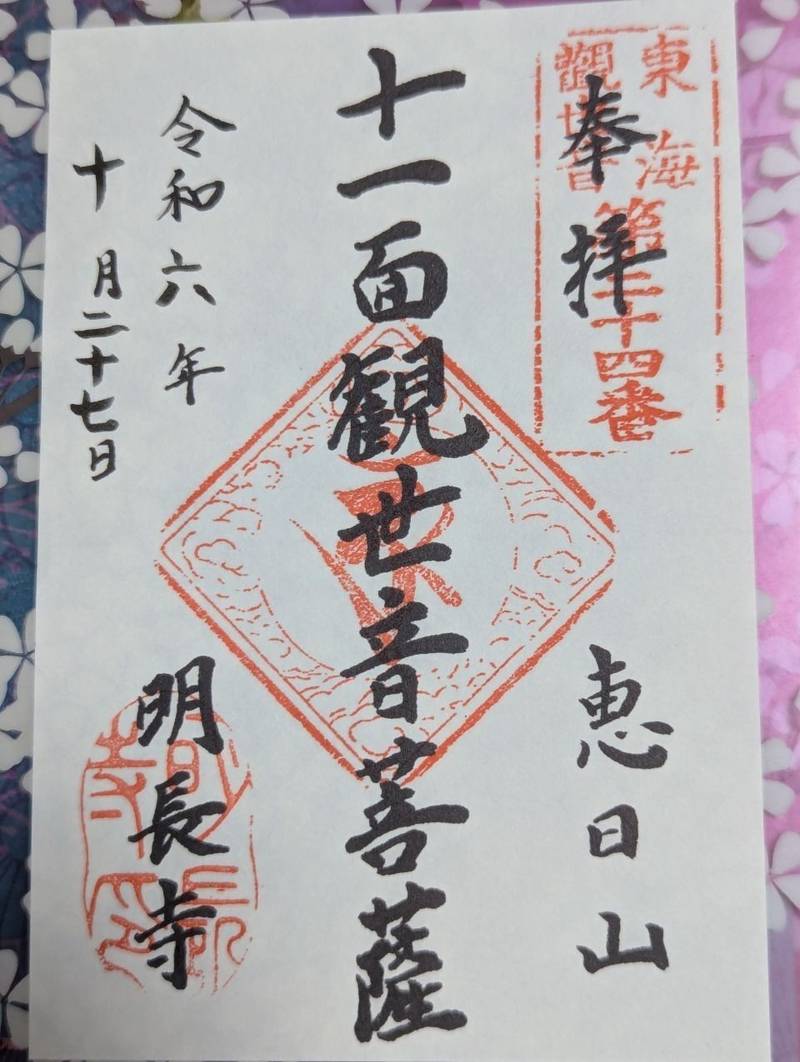 奉拝
東海
觀世音
第二十四番
恵日山
十一面観世音菩薩
令和六年
十月二十七日
明長寺